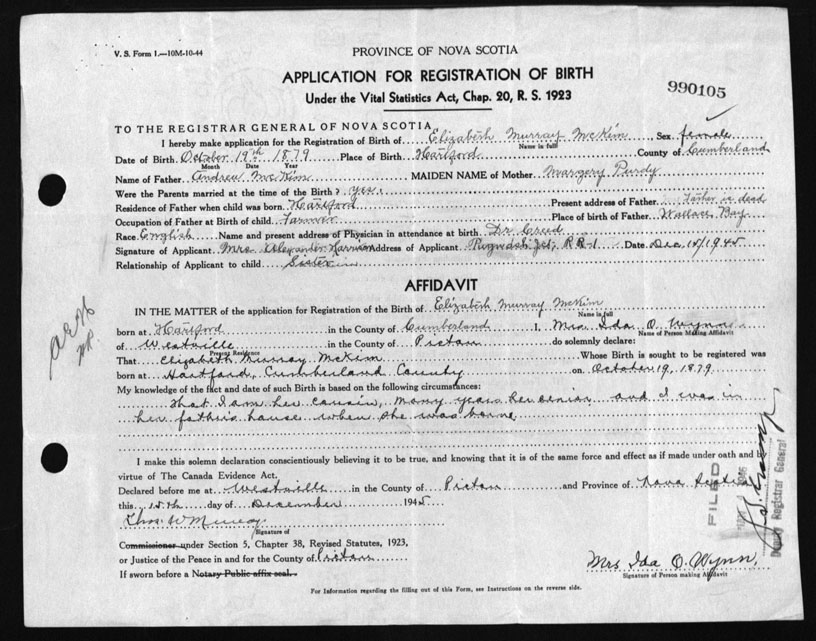 V. S. Form 1.—10M-10-44
PROVINCE OF NOVA SCOTIA
APPLICATION FOR REGISTRATION OF BIRTH
Under the Vital Statistics Act, Chap. 20, R. S. 1923
990105
TO THE REGISTRAR GENERAL OF NOVA SCOTIA
I hereby make application for the Registration of Birth of Elizabeth Murray McKim Sex female
Name in full
Date of Birth October 19th 1879 Place of Birth Hartford County of Cumberland
Month Date Year
Name of Father Andrew McKim MAIDEN NAME of Mother Margery Purdy
Were the Parents married at the time of the Birth? yes.
Residence of Father when child was born Hartford Present address of Father Father is dead
Occupation of Father at Birth of child Farmer Place of birth of Father Wallace Bay
Race English Name and present address of Physician in attendance at birth Dr Creed
Signature of Applicant Mrs Alexander Harrison Address of Applicant Pugwash Jct, RR 1 Date Dec 14/1945
Relationship of Applicant to child Sister
AFFIDAVIT
IN THE MATTER of the application for Registration of the Birth of Elizabeth Murray McKim
Name in full
born at Hartford in the County of Cumberland I, Mrs Ida O. Wynn
Name of Person Making Affidavit
of Westville in the County of Pictou do solemnly declare:
Present Residence
That Elizabeth Murray McKim Whose Birth is sought to be registered was
born at Hartford, Cumberland County on October 19, 1879
My knowledge of the fact and date of such Birth is based on the following circumstances:
that I am her cousin, many years her senior and I was in
her father's house when she was borne
I make this solemn declaration conscientiously believing it to be true, and knowing that it is of the same force and effect as if made under oath and by
virtue of The Canada Evidence Act.
Declared before me at Westville in the County of Pictou and Province of Nova Scotia
this 15th day of December 1945
Thos W Murray
Signature of
Commissioner under Section 5, Chapter 38, Revised Statutes, 1923,
or Justice of the Peace in and for the County of Pictou
If sworn before a Notary Public affix seal.
Mrs Ida O. Wynn,
Signature of Person making Affidavit
For Information regarding the filling out of this Form, see Instructions on the reverse side.
FILED
Deputy Registrar General